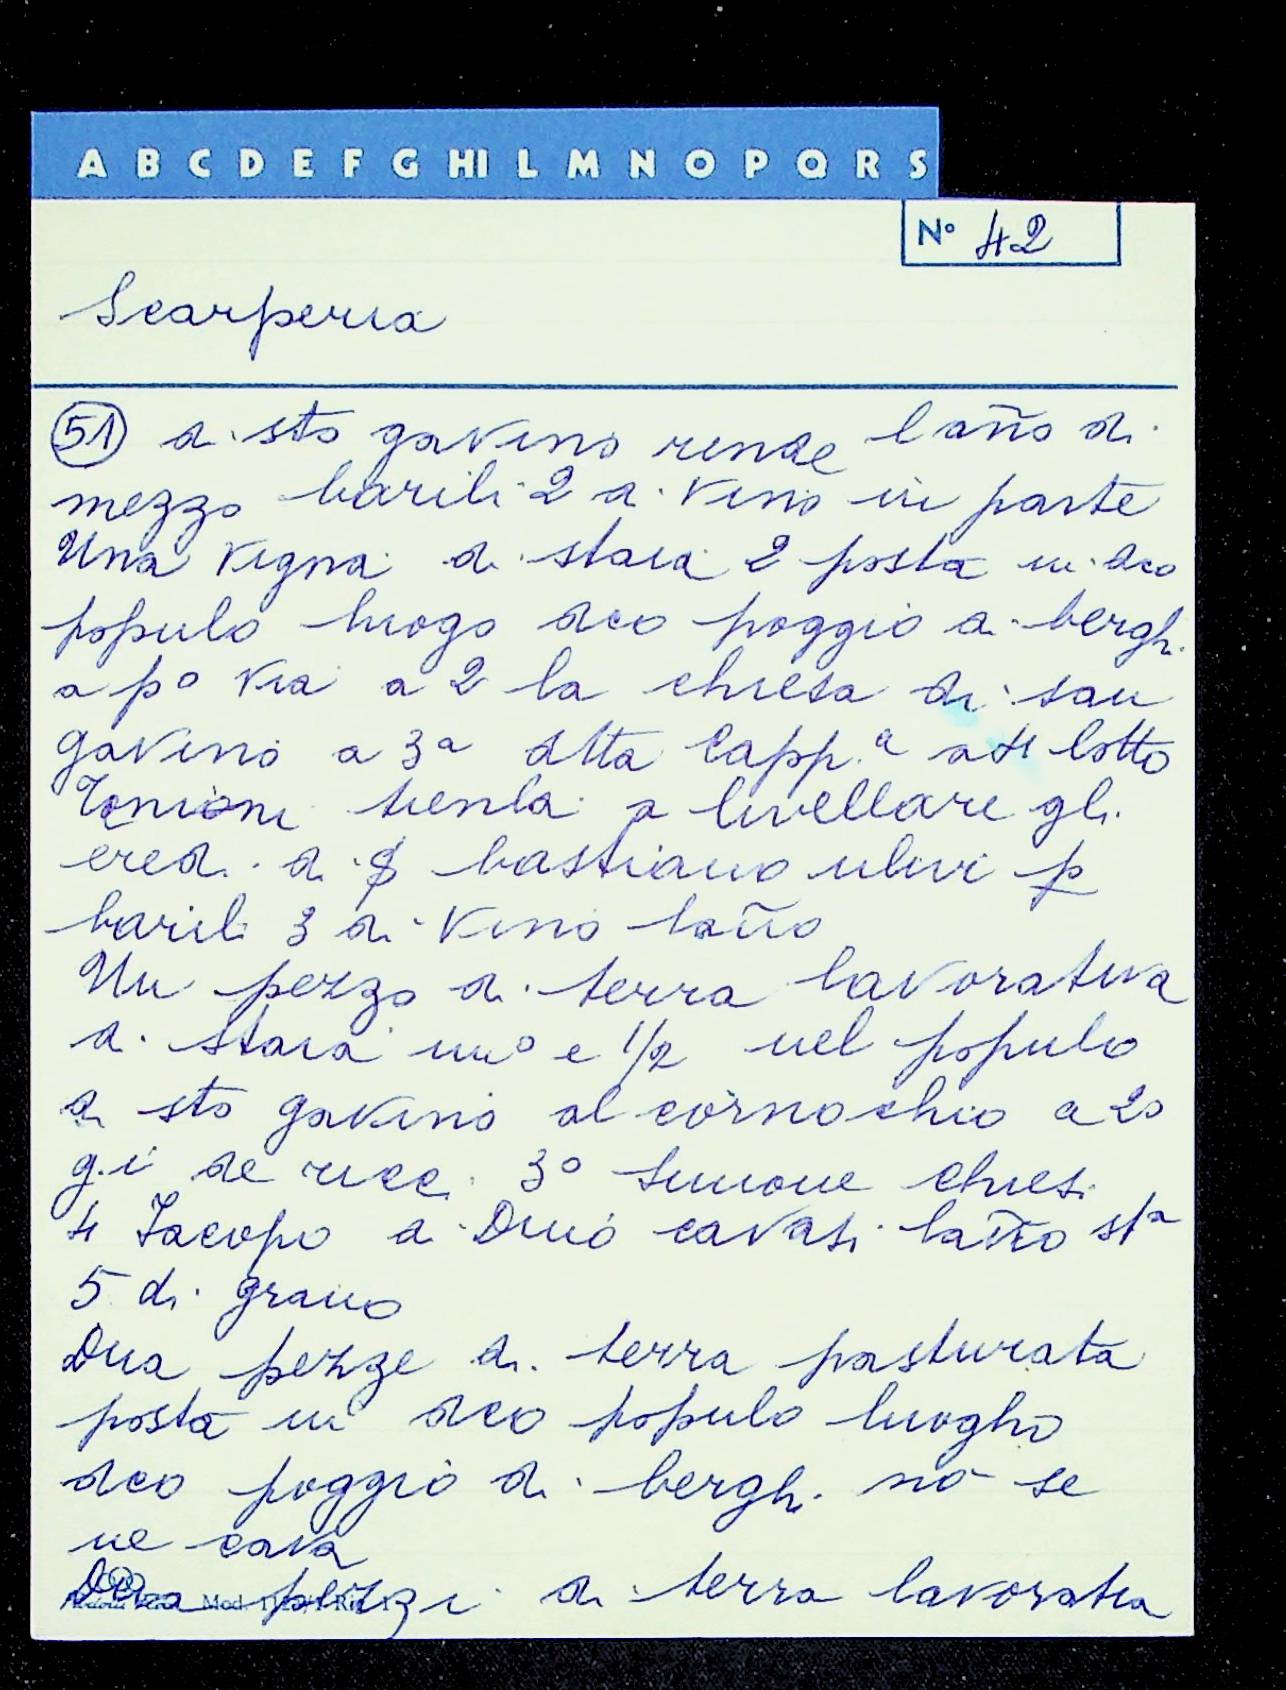 A B C D E F G HI L M N O P Q R S
N° 42
Scarperia
51 di sto gavino rende lãno di
mezzo barili 2 di vino in parte
Una vigna di staia 2 posta in dco
populo luogo dco poggio a bergh.
a p° via a 2 la chiesa di san
gavino a 3ª dtta Capp.ª a 4 lotto
tienla a livellare gli
eredi di bastiano ulivi p
barili 3 di vino lãno
Un pezzo di terra lavorativa
di staia un° e 1/2 nel populo
di sto gavino al cornochio a 2°
g.i de ricci 3° Simone
4 Jacopo di Dino cavasi lãno stª
5 di grano
Dua pezze di terra pasturata
posta in dco populo luogho
dco poggio di bergh. nõ se
ne cava
Dua pezzi di terra lavoratia